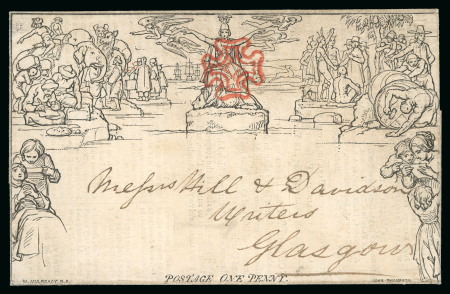 Messrs Hill & Davidson
Writers
Glasgow
W. MULREADY. R.A.
POSTAGE ONE PENNY.
JOHN THOMPSON